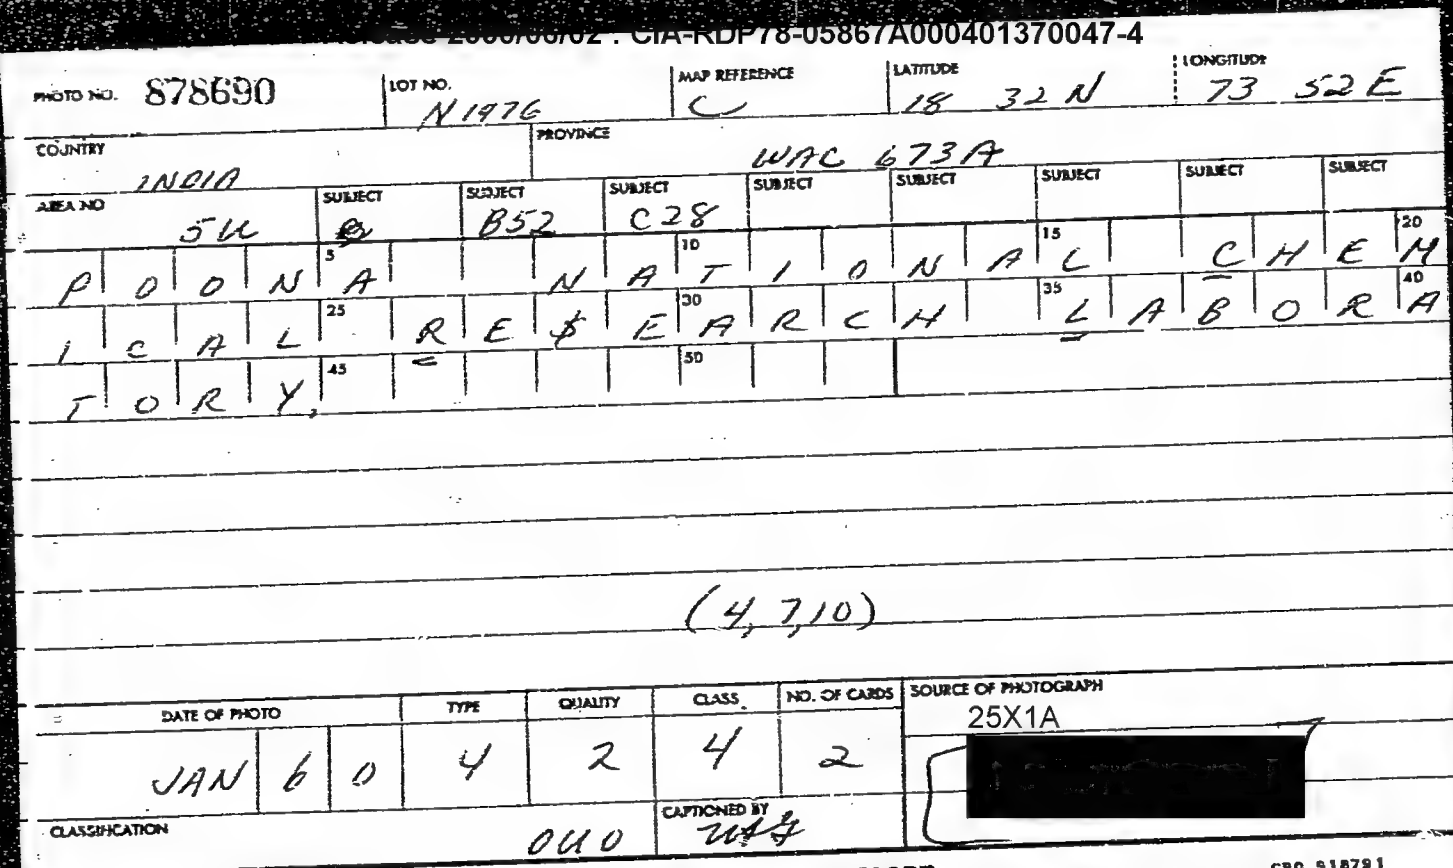 2000/06/02 : CIA-RDP78-05867A000401370047-4
PHOTO NO. 878690 LOT NO. N1976 MAP REFERENCE C LATITUDE 18 32 N LONGITUDE 73 52 E
COUNTRY INDIA PROVINCE WAC 673A
AREA NO 5U SUBJECT SUBJECT B52 SUBJECT C28 SUBJECT SUBJECT SUBJECT SUBJECT SUBJECT
5 10 15 20
POONA NATIONAL CHEM
25 30 35 40
ICAL RESEARCH LABORA
45 50
TORY,
(4,7,10)
DATE OF PHOTO TYPE QUALITY CLASS. NO. OF CARDS SOURCE OF PHOTOGRAPH
25X1A
JAN 60 4 2 4 2
CLASSIFICATION OUO CAPTIONED BY